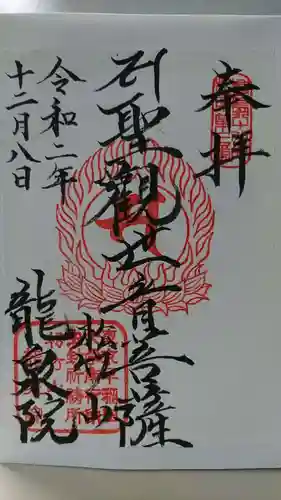 奉拝
聖觀世音菩薩
松竹山
龍泉院
令和二年
十二月八日